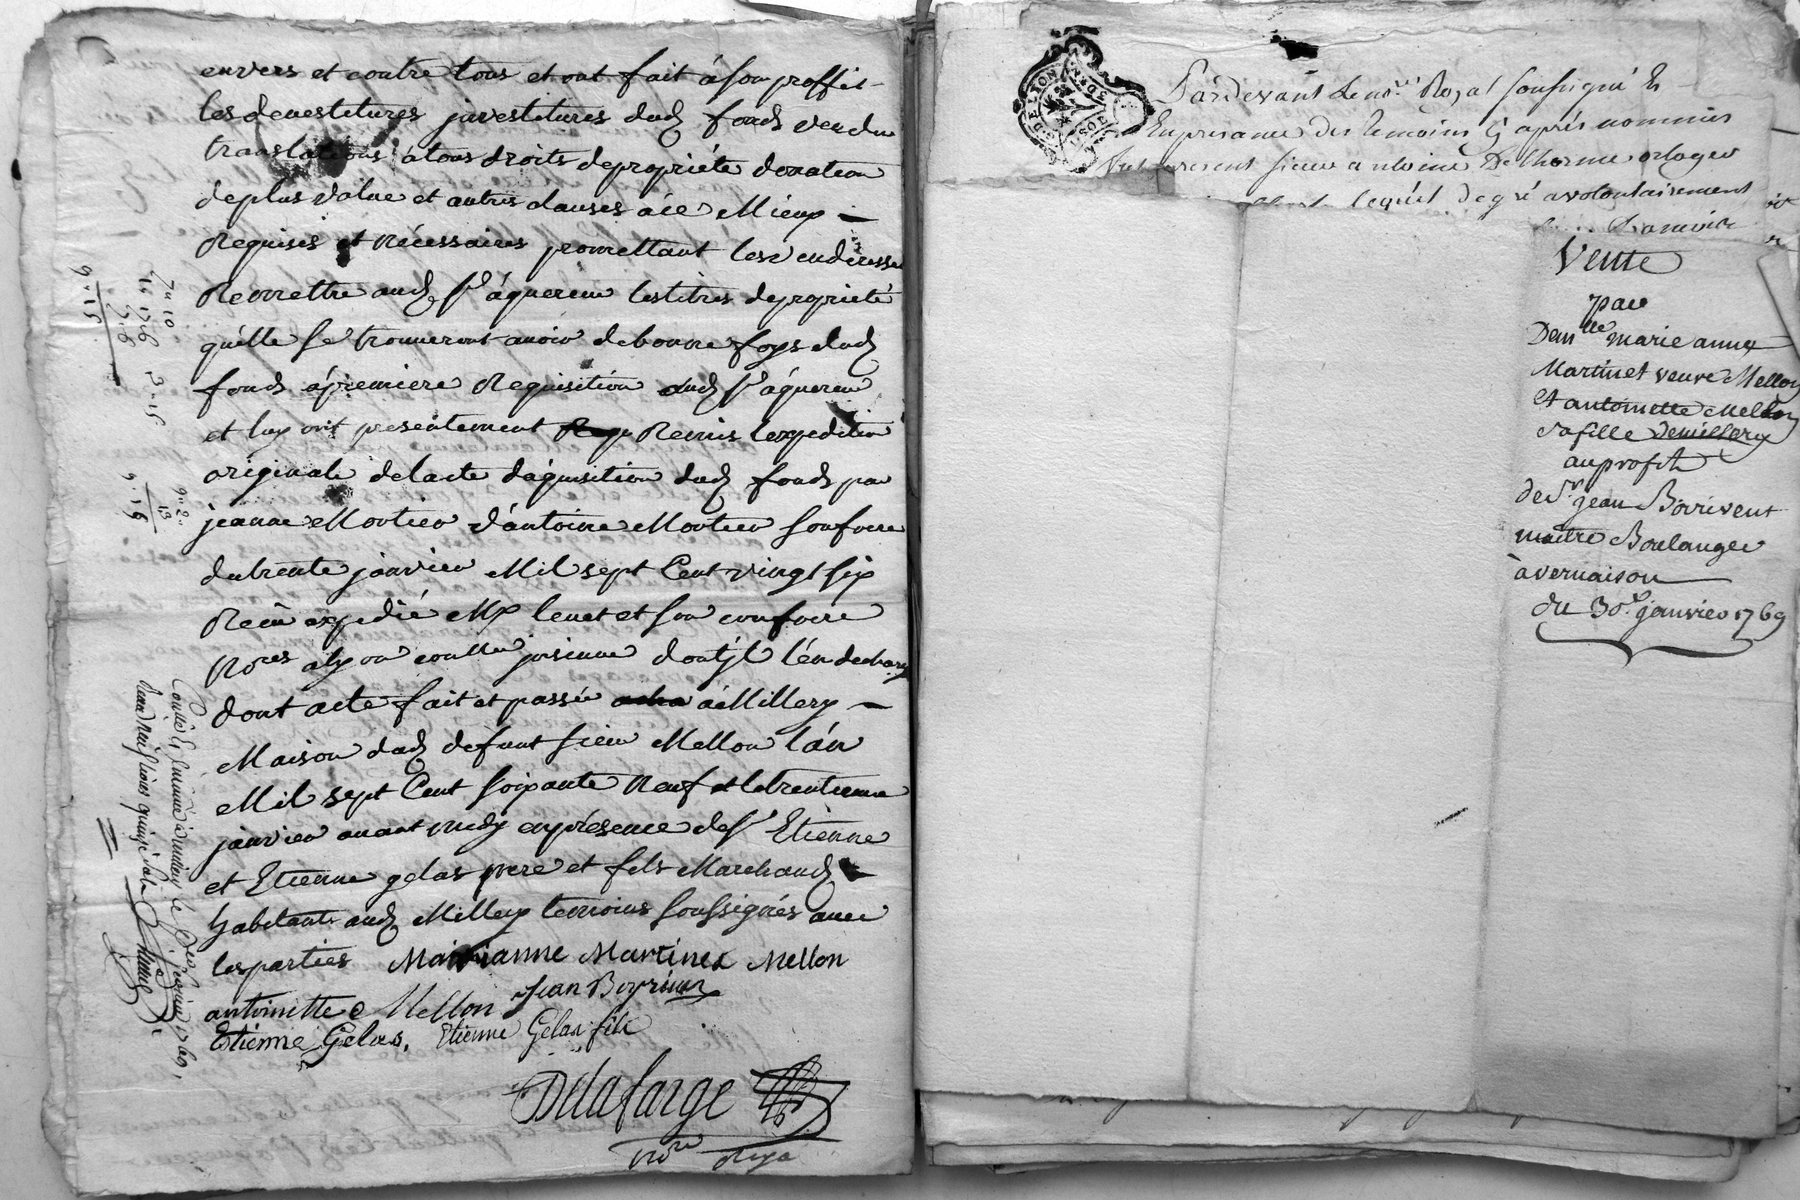 envers et contre tous et ont fait à son proffit
les devestitures jnvestitures dud fonds vendu
translations à tous droits de propriété donation
de plus value et autres clauses à ce
Requises et nécessaires promettant les venderesses
Remettre aud Sr áquereur les titres de propriété
qu'elle se trouveront avoir de bonne foys dud
fonds á premiere Requisition dud Sr áquereur
et luy ont presentement Remis lexpedition
originale de lacte dáquisition dud fonds par
jeanne Mortier d'antoine Mortier son frere
du trente janvier Mil sept Cent vingt six
Reçu expedié Me et son confrere
Nores à lyon
dont acte fait et passé à Millery
Maison dud défunt sieur Mellon l'án
Mil sept Cent soixante Neuf et le trentieme
janvier avant midy en présence de Sr Etienne
et Etienne gelas pere et fils Marchands
habitants aud Millery temoins soussignés avec
les parties Marianne Martinet Mellon
antoinette Mellon Jean Boyrivin
Etiénne Gelas, Etienne Gelas fils
Delafarge
Nore Roya
7" 10
9" 15
3" 15
9" 2
13
9" 15
quinze sols
Pardevant le nore Royal soussigné &
En presance des temoins Cy aprés nommés
fut present sieur antoine Delhorme orloger
lequel de gré a volontairement
GDELION
Vente
par
Demlle marie anne
Martinet veuve Mellon
et antoinette Mellon
sa fille de millery
au profit
de Sr jean Boirivent
maître Boulanger
à vernaison
du 30e janvier 1769